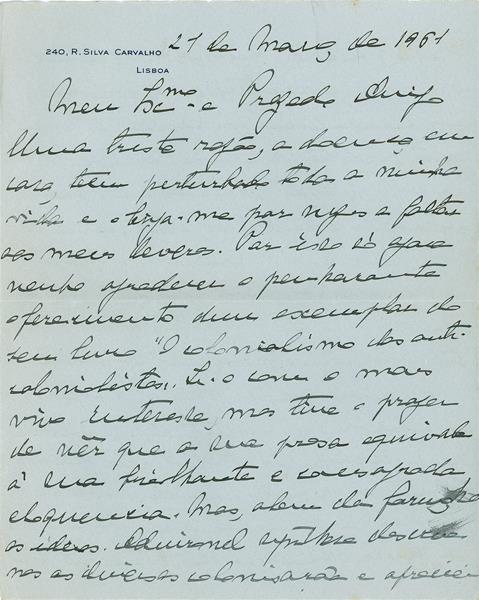 240, R. SILVA CARVALHO
LISBOA
27 de Março de 1961
Meu Exmo e Prezado Amigo
Uma triste razão, a doença em
casa, tem perturbado toda a minha
vida e obriga-me por vezes a faltar
aos meus deveres. Por isso só agora
venho agradecer o penhorante
oferecimento dum exemplar do
seu livro "O colonialismo dos anti-
colonialistas". Li-o com o mais
vivo interesse, mas tive o prazer
de vêr que a sua prosa equivale
á sua brilhante e consagrada
eloquencia. Mas, alem da
as ideas. Admiravel sintese
nos as diversas colonisação e